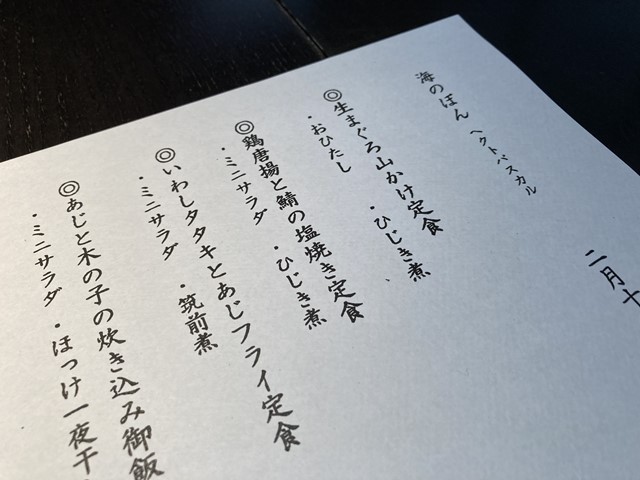 海のぼん ヘクトパスカル
二月十
◎生まぐろ山かけ定食
・おひたし ・ひじき煮
◎鶏唐揚と鯖の塩焼き定食
・ミニサラダ ・ひじき煮
◎いわしタタキとあじフライ定食
・ミニサラダ ・筑前煮
◎あじと木の子の炊き込み御飯
・ミニサラダ ・ほっけ一夜干